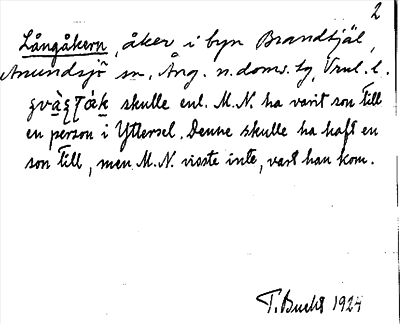 2
Långåkern, åker i byn Brandkjäl,
Anundsjö sn, Ång. n. doms.
skulle enl. M.N. ha varit son till
en person i Yttersel. Denne skulle ha haft en
son till, men M.N. visste inte, vart han kom.
T. Bucht 1924